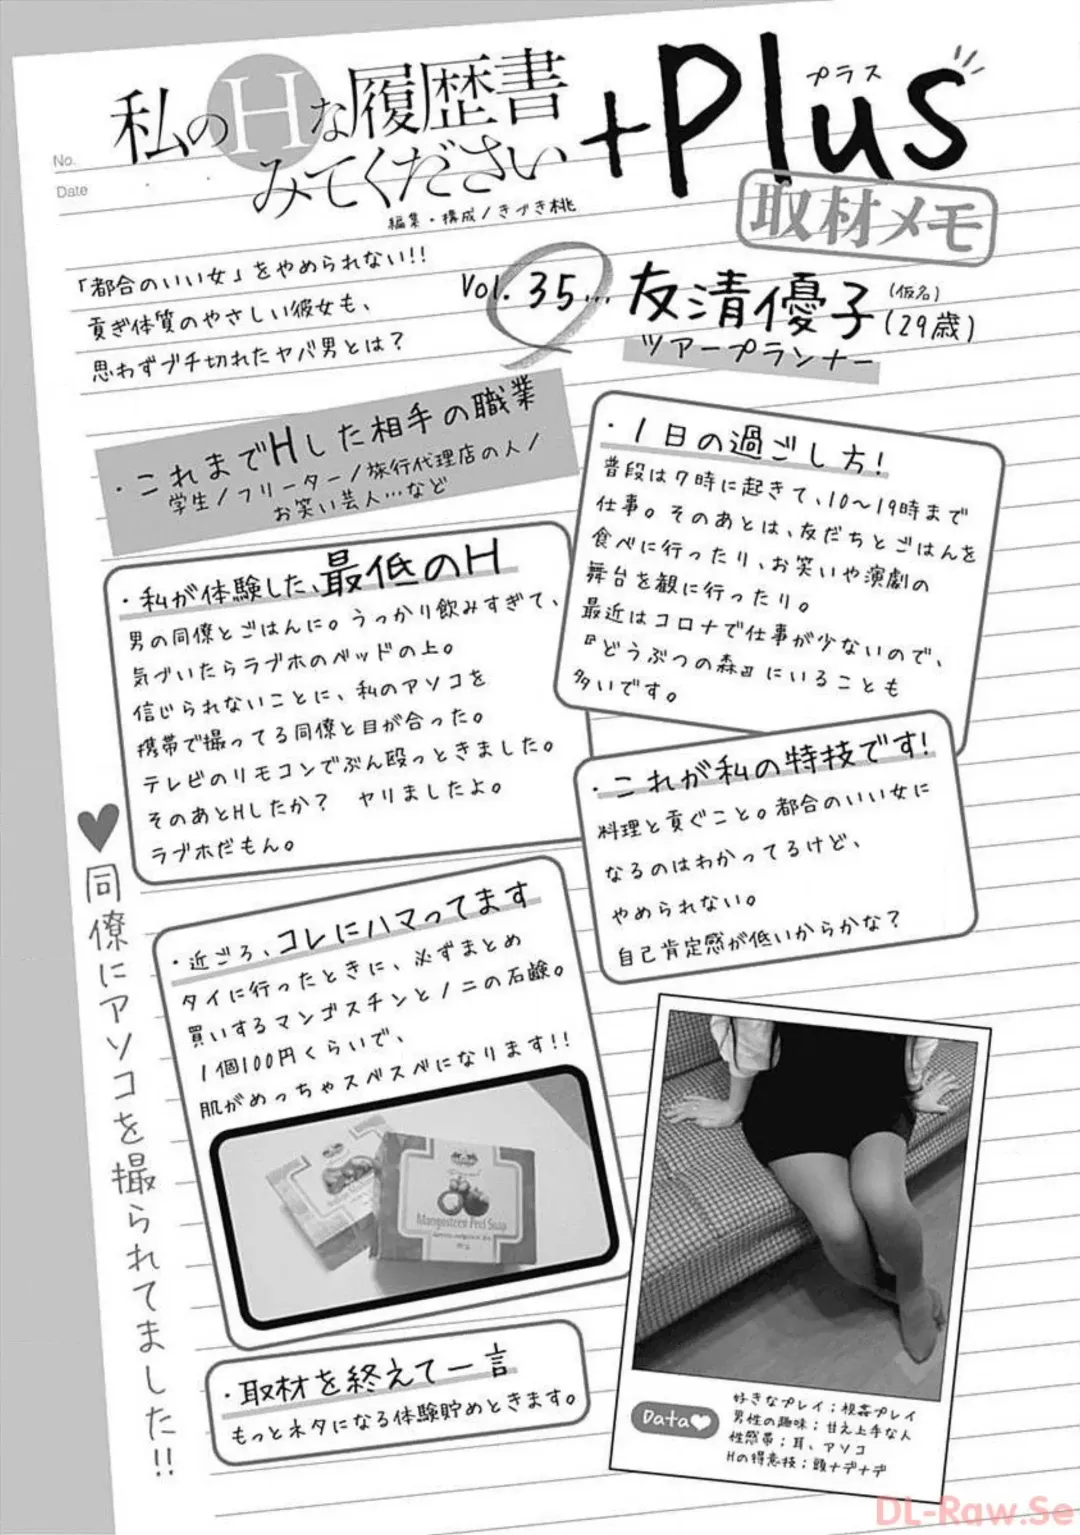 No.
Date
私のHな履歴書
みてください
+Plus
プラス
取材メモ
編集・構成/きづき桃
「都合のいい女」をやめられない!!
貢ぎ体質のやさしい彼女も、
思わずブチ切れたヤバ男とは?
Vol. 35... 友清優子(仮名)(29歳)
ツアープランナー
・これまでHした相手の職業
学生/フリーター/旅行代理店の人/
お笑い芸人…など
・1日の過ごし方!
普段は7時に起きて、10〜19時まで
仕事。そのあとは、友だちとごはんを
食べに行ったり、お笑いや演劇の
舞台を観に行ったり。
最近はコロナで仕事が少ないので、
『どうぶつの森』にいることも
多いです。
・私が体験した、最低のH
男の同僚とごはんに。うっかり飲みすぎて、
気づいたらラブホのベッドの上。
信じられないことに、私のアソコを
携帯で撮ってる同僚と目が合った。
テレビのリモコンでぶん殴っときました。
そのあとHしたか? ヤリましたよ。
ラブホだもん。
・これが私の特技です!
料理と貢ぐこと。都合のいい女に
なるのはわかってるけど、
やめられない。
自己肯定感が低いからかな?
♥同僚にアソコを撮られてました!!
・近ごろ、コレにハマってます
タイに行ったときに、必ずまとめ
買いするマンゴスチンとノニの石鹸。
1個100円くらいで、
肌がめっちゃスベスベになります!!
Mangosteen Peel Soap
・取材を終えて一言
もっとネタになる体験貯めときます。
Data♥
好きなプレイ;視姦プレイ
男性の趣味;甘え上手な人
性感帯;耳、アソコ
Hの得意技;頭ナデナデ
DL-Raw.Se